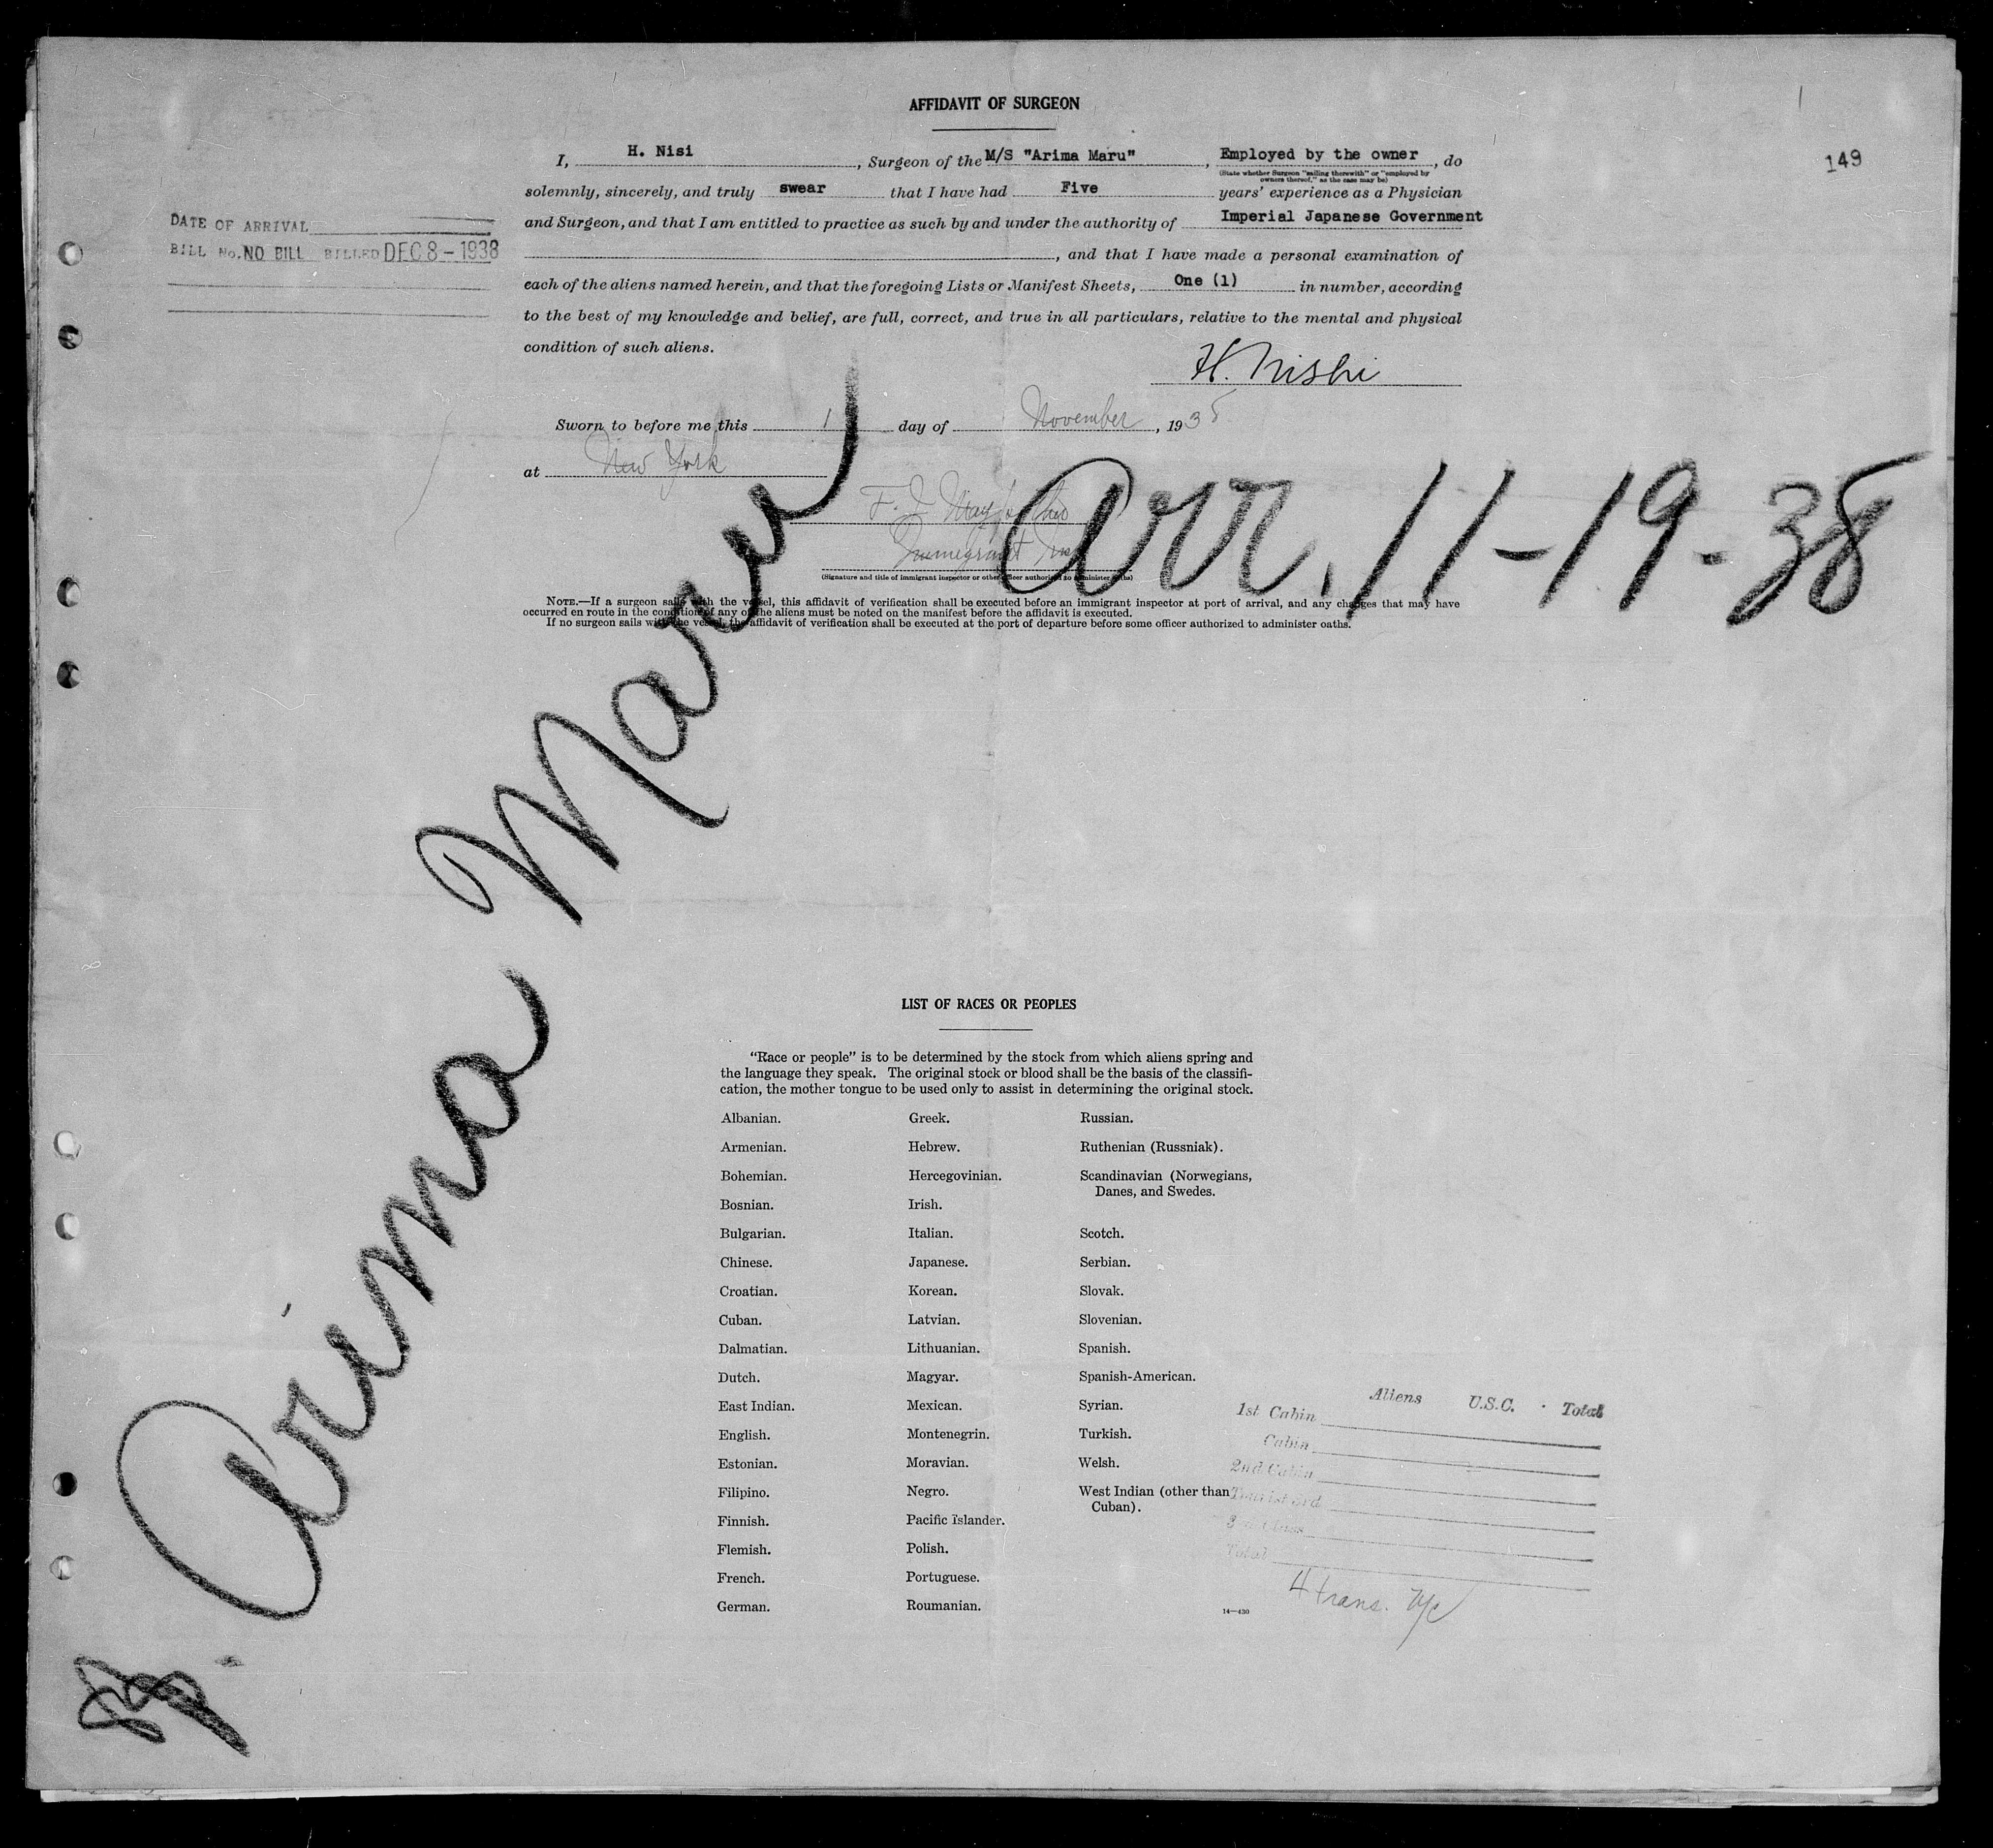 AFFIDAVIT OF SURGEON
149
I, H. Nisi, Surgeon of the M/S "Arima Maru", Employed by the owner, do
(State whether Surgeon "sailing therewith" or "employed by
owners thereof," as the case may be)
solemnly, sincerely, and truly swear that I have had Five years' experience as a Physician
and Surgeon, and that I am entitled to practice as such by and under the authority of Imperial Japanese Government
, and that I have made a personal examination of
each of the aliens named herein, and that the foregoing Lists or Manifest Sheets, One (1) in number, according
to the best of my knowledge and belief, are full, correct, and true in all particulars, relative to the mental and physical
condition of such aliens.
DATE OF ARRIVAL
BILL No. NO BILL BILLED DEC 8-1938
H. Nishi
Sworn to before me this 1 day of November, 1938
at New York
Immigrant Insp
(Signature and title of immigrant inspector or other officer authorized to administer oaths)
Arr. 11-19-38
NOTE.—If a surgeon sails with the vessel, this affidavit of verification shall be executed before an immigrant inspector at port of arrival, and any changes that may have
occurred en route in the condition of any of the aliens must be noted on the manifest before the affidavit is executed.
If no surgeon sails with the vessel, the affidavit of verification shall be executed at the port of departure before some officer authorized to administer oaths.
Arima Maru
LIST OF RACES OR PEOPLES
"Race or people" is to be determined by the stock from which aliens spring and
the language they speak. The original stock or blood shall be the basis of the classifi-
cation, the mother tongue to be used only to assist in determining the original stock.
Albanian.
Armenian.
Bohemian.
Bosnian.
Bulgarian.
Chinese.
Croatian.
Cuban.
Dalmatian.
Dutch.
East Indian.
English.
Estonian.
Filipino.
Finnish.
Flemish.
French.
German.
Greek.
Hebrew.
Hercegovinian.
Irish.
Italian.
Japanese.
Korean.
Latvian.
Lithuanian.
Magyar.
Mexican.
Montenegrin.
Moravian.
Negro.
Pacific Islander.
Polish.
Portuguese.
Roumanian.
Russian.
Ruthenian (Russniak).
Scandinavian (Norwegians,
Danes, and Swedes.
Scotch.
Serbian.
Slovak.
Slovenian.
Spanish.
Spanish-American.
Syrian.
Turkish.
Welsh.
West Indian (other than
Cuban).
Aliens U.S.C. Total
1st Cabin
Cabin
2nd Cabin
Tourist 3rd
3rd Class
Total
4 trans.
14—430